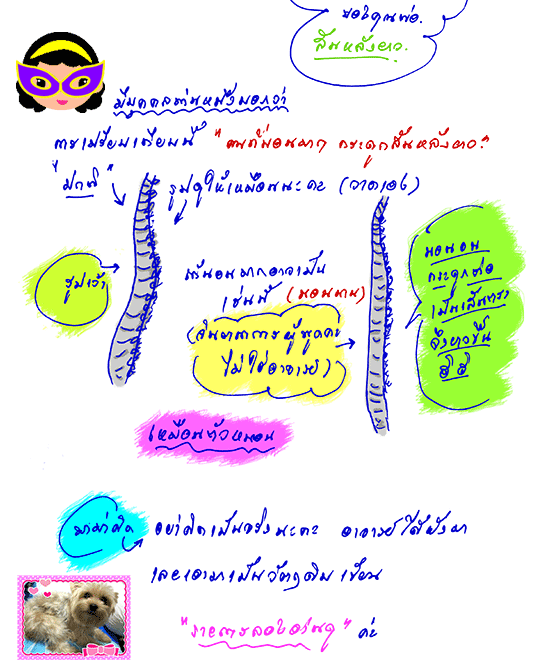 ขอให้คุณพ่อ.
สันหลังยาว.
มีบุคคลท่านหนึ่งบอกว่า
การเปรียบเทียบนี้ "คนที่นอนมากๆ กระดูกสันหลังยาว."
"ปกติ"
รูปดูให้เหมือนนะคะ (วาดเอง)
รูปเจ้า
แต่นอนมากอาจเป็น
เช่นนี้ (นอนนาน)
(จินตนาการผู้พูดค่ะ
ไม่ใช่อาจารย์)
นอนอน
กระดูกต่อ
เป็นเส้นตรง
จึงยาวขึ้น
ฮิ ฮิ
เหมือนตัวหนอน
อย่าคิดเป็นจริงนะคะ อาจารย์ได้ฟังมา
เลยเอามาเป็นวัตถุดิบเขียน
ค่ะ